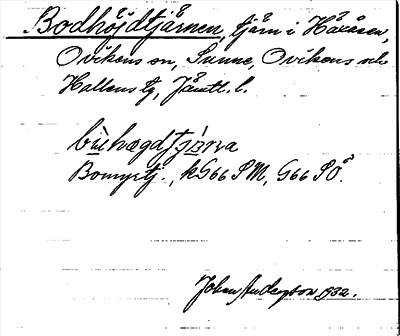 Bodhöjdtjärnen, tjärn i Håxåsen,
Ovikens sn, Sunne, Ovikens och
Hallens tg, Jämtl. l.
bùhœgdtjànna
, k G66 PM, G66 PÖ.
Johan Anderson 1932.